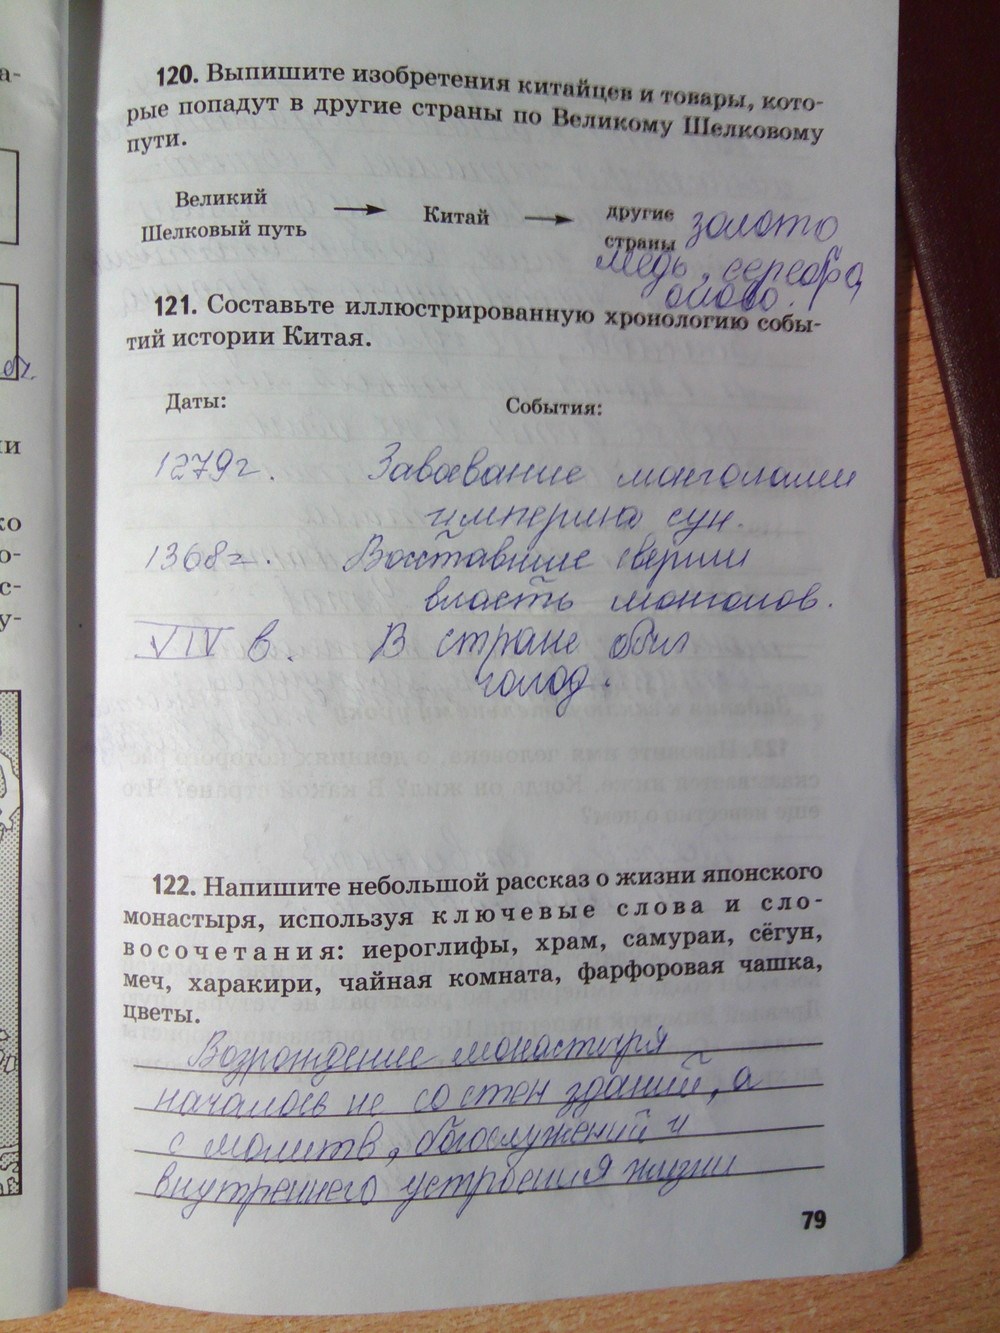 а-
ли
ко
о-
с-
у-
120. Выпишите изобретения китайцев и товары, кото-
рые попадут в другие страны по Великому Шелковому
пути.
Великий
Шелковый путь
Китай
другие
страны
золото
медь, серебро,
олово.
121. Составьте иллюстрированную хронологию собы-
тий истории Китая.
Даты:
События:
1279г. Завоевание монголами
империю сун.
1368г. Восставшие свергли
власть монголов.
VIV в. В стране был
голод.
122. Напишите небольшой рассказ о жизни японского
монастыря, используя ключевые слова и сло-
восочетания: иероглифы, храм, самураи, сёгун,
меч, харакири, чайная комната, фарфоровая чашка,
цветы.
Возрождение монастыря
началось не со стен зданий, а
с молитв, обгослужений и
внутреннего устроения жизни
79